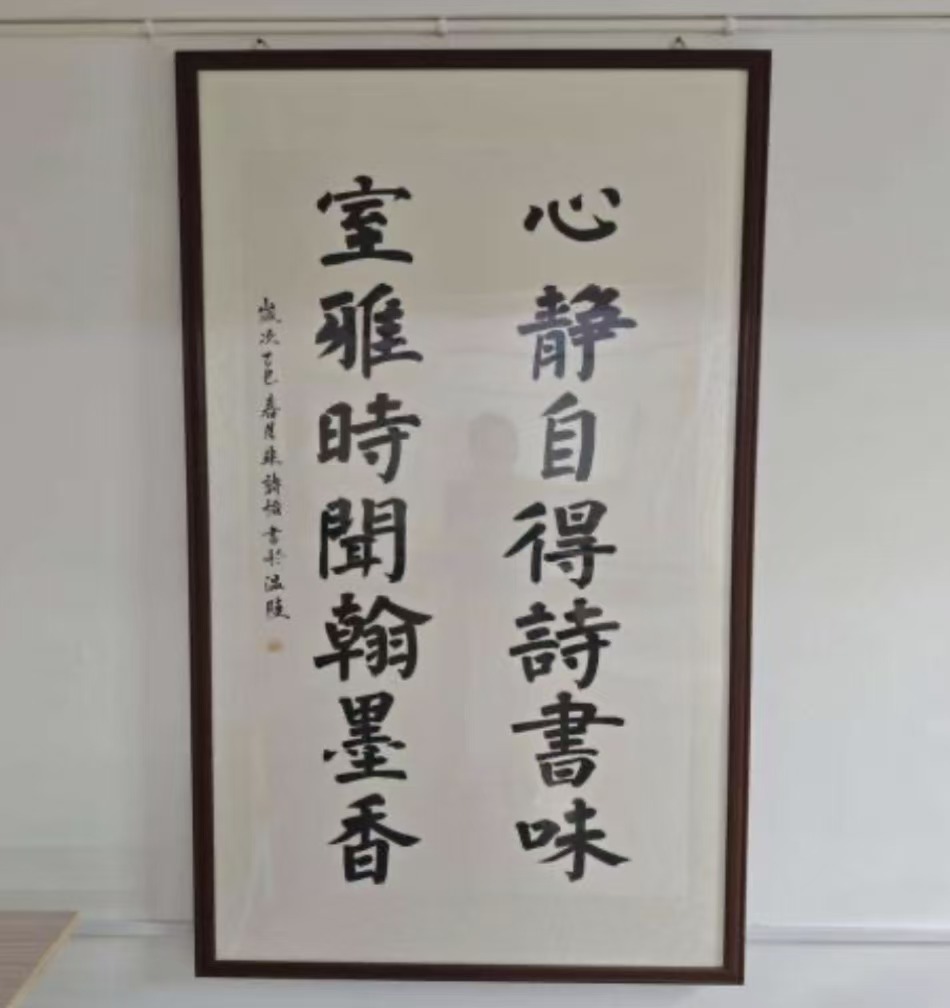 心靜自得詩書味
室雅時聞翰墨香
歲次 春月 詩 書於溫陵